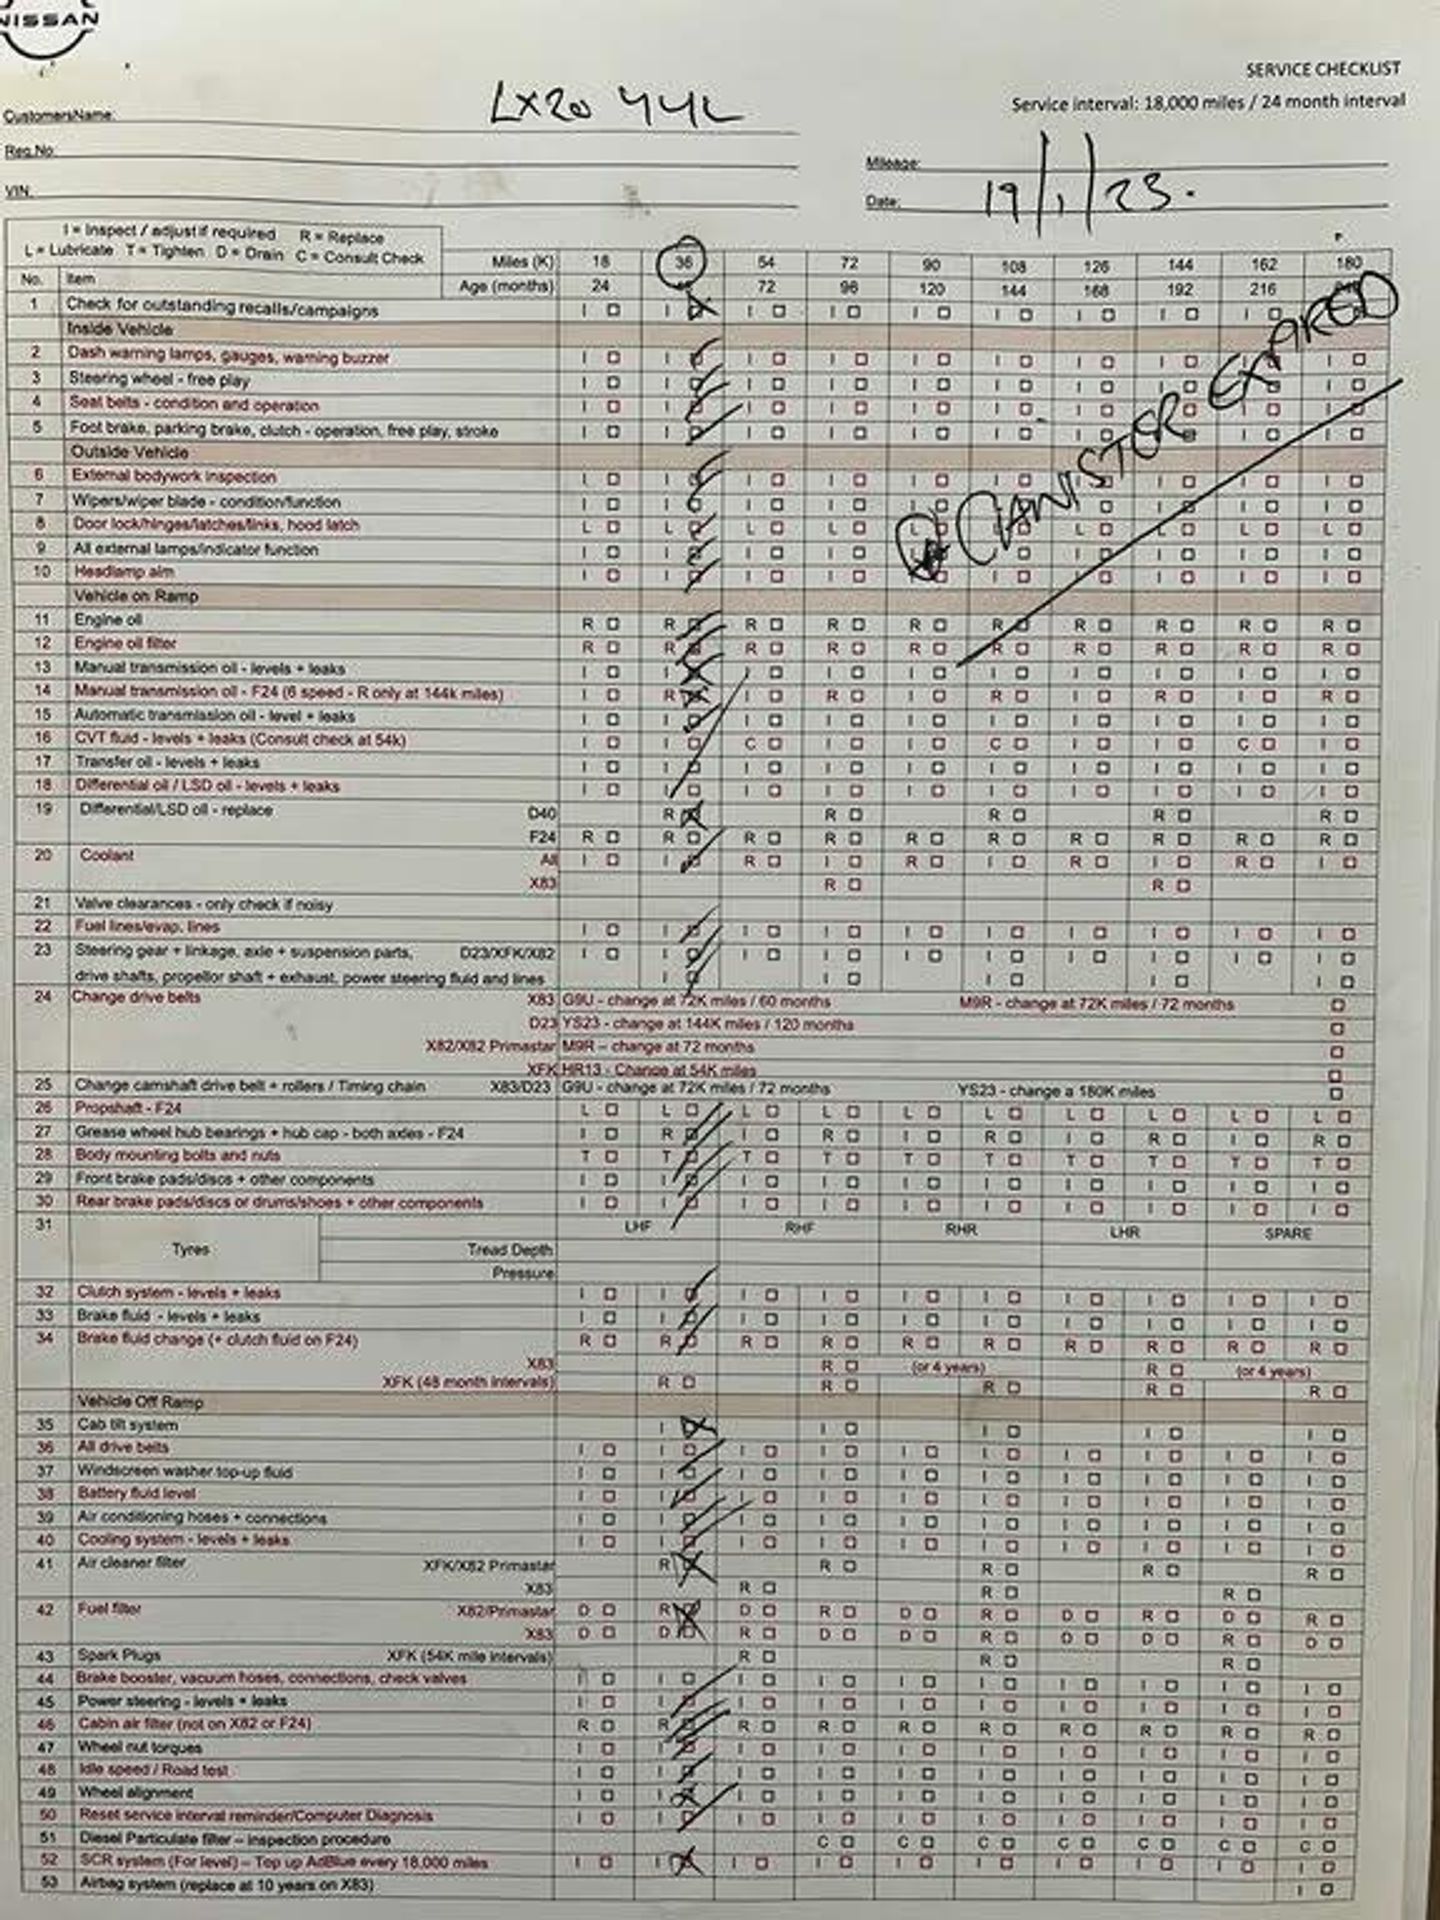 NISSAN
SERVICE CHECKLIST
Service interval: 18,000 miles / 24 month interval
CustomersName: LX20 YYL
Reg.No:
Mileage:
VIN.
Date: 19/1/23.
I = Inspect / adjust if required R = Replace
L = Lubricate T = Tighten D = Drain C = Consult Check
Miles (K) 18 36 54 72 90 108 126 144 162 180
No. Item Age (months) 24 72 96 120 144 168 192 216
1 Check for outstanding recalls/campaigns I I I I I I I I
Inside Vehicle
2 Dash warning lamps, gauges, warning buzzer I I I I I I I I I I
3 Steering wheel - free play I I I I I I I I
4 Seat belts - condition and operation I I I I I I I
5 Foot brake, parking brake, clutch - operation, free play, stroke I I I I I I I I I
Outside Vehicle
* CANISTER EXPIRED
6 External bodywork inspection I I I I I I I I I
7 Wipers/wiper blade - condition/function I I I I I I I I
8 Door lock/hinges/latches/links, hood latch L L L L L L L L L
9 All external lamps/indicator function I I I I I I I I I
10 Headlamp aim I I I I I I I I I
Vehicle on Ramp
11 Engine oil R R R R R R R R R R
12 Engine oil filter R R R R R R R R R R
13 Manual transmission oil - levels + leaks I I I I I I I I I I
14 Manual transmission oil - F24 (6 speed - R only at 144k miles) I R I R I R I R I R
15 Automatic transmission oil - level + leaks I I I I I I I I I I
16 CVT fluid - levels + leaks (Consult check at 54k) I I C I I C I I C I
17 Transfer oil - levels + leaks I I I I I I I I I I
18 Differential oil / LSD oil - levels + leaks I I I I I I I I I I
19 Differential/LSD oil - replace D40 R R R R R
F24 R R R R R R R R R R
20 Coolant All I I R I R I R I R I
X83 R R
21 Valve clearances - only check if noisy
22 Fuel lines/evap. lines I I I I I I I I I I
23 Steering gear + linkage, axle + suspension parts, D23/XFK/X82 I I I I I I I I I I
drive shafts, propellor shaft + exhaust, power steering fluid and lines I I I I I
24 Change drive belts X83 G9U - change at 72K miles / 60 months M9R - change at 72K miles / 72 months
D23 YS23 - change at 144K miles / 120 months
X82/X82 Primastar M9R – change at 72 months
XFK HR13 - Change at 54K miles
25 Change camshaft drive belt + rollers / Timing chain X83/D23 G9U - change at 72K miles / 72 months YS23 - change a 180K miles
26 Propshaft - F24 L L L L L L L L L L
27 Grease wheel hub bearings + hub cap - both axles - F24 I R I R I R I R I R
28 Body mounting bolts and nuts T T T T T T T T T T
29 Front brake pads/discs + other components I I I I I I I I I I
30 Rear brake pads/discs or drums/shoes + other components I I I I I I I I I I
31 LHF RHF RHR LHR SPARE
Tyres Tread Depth
Pressure
32 Clutch system - levels + leaks I I I I I I I I I I
33 Brake fluid - levels + leaks I I I I I I I I I I
34 Brake fluid change (+ clutch fluid on F24) R R R R R R R R R R
X83 R (or 4 years) R (or 4 years)
XFK (48 month intervals) R R R R R
Vehicle Off Ramp
35 Cab tilt system I I I I I
36 All drive belts I I I I I I I I I I
37 Windscreen washer top-up fluid I I I I I I I I I I
38 Battery fluid level I I I I I I I I I I
39 Air conditioning hoses + connections I I I I I I I I I I
40 Cooling system - levels + leaks I I I I I I I I I I
41 Air cleaner filter XFK/X82 Primastar R R R R R
X83 R R R
42 Fuel filter X82/Primastar D R D R D R D R D R
X83 D D R D D R D D R D
43 Spark Plugs XFK (54K mile intervals) R R R
44 Brake booster, vacuum hoses, connections, check valves I I I I I I I I I I
45 Power steering - levels + leaks I I I I I I I I I I
46 Cabin air filter (not on X82 or F24) R R R R R R R R R R
47 Wheel nut torques I I I I I I I I I I
48 Idle speed / Road test I I I I I I I I I I
49 Wheel alignment I I I I I I I I I I
50 Reset service interval reminder/Computer Diagnosis I I I I I I I I I I
51 Diesel Particulate filter – inspection procedure C C C C C C C
52 SCR system (For level) – Top up AdBlue every 18,000 miles I I I I I I I I I I
53 Airbag system (replace at 10 years on X83) I